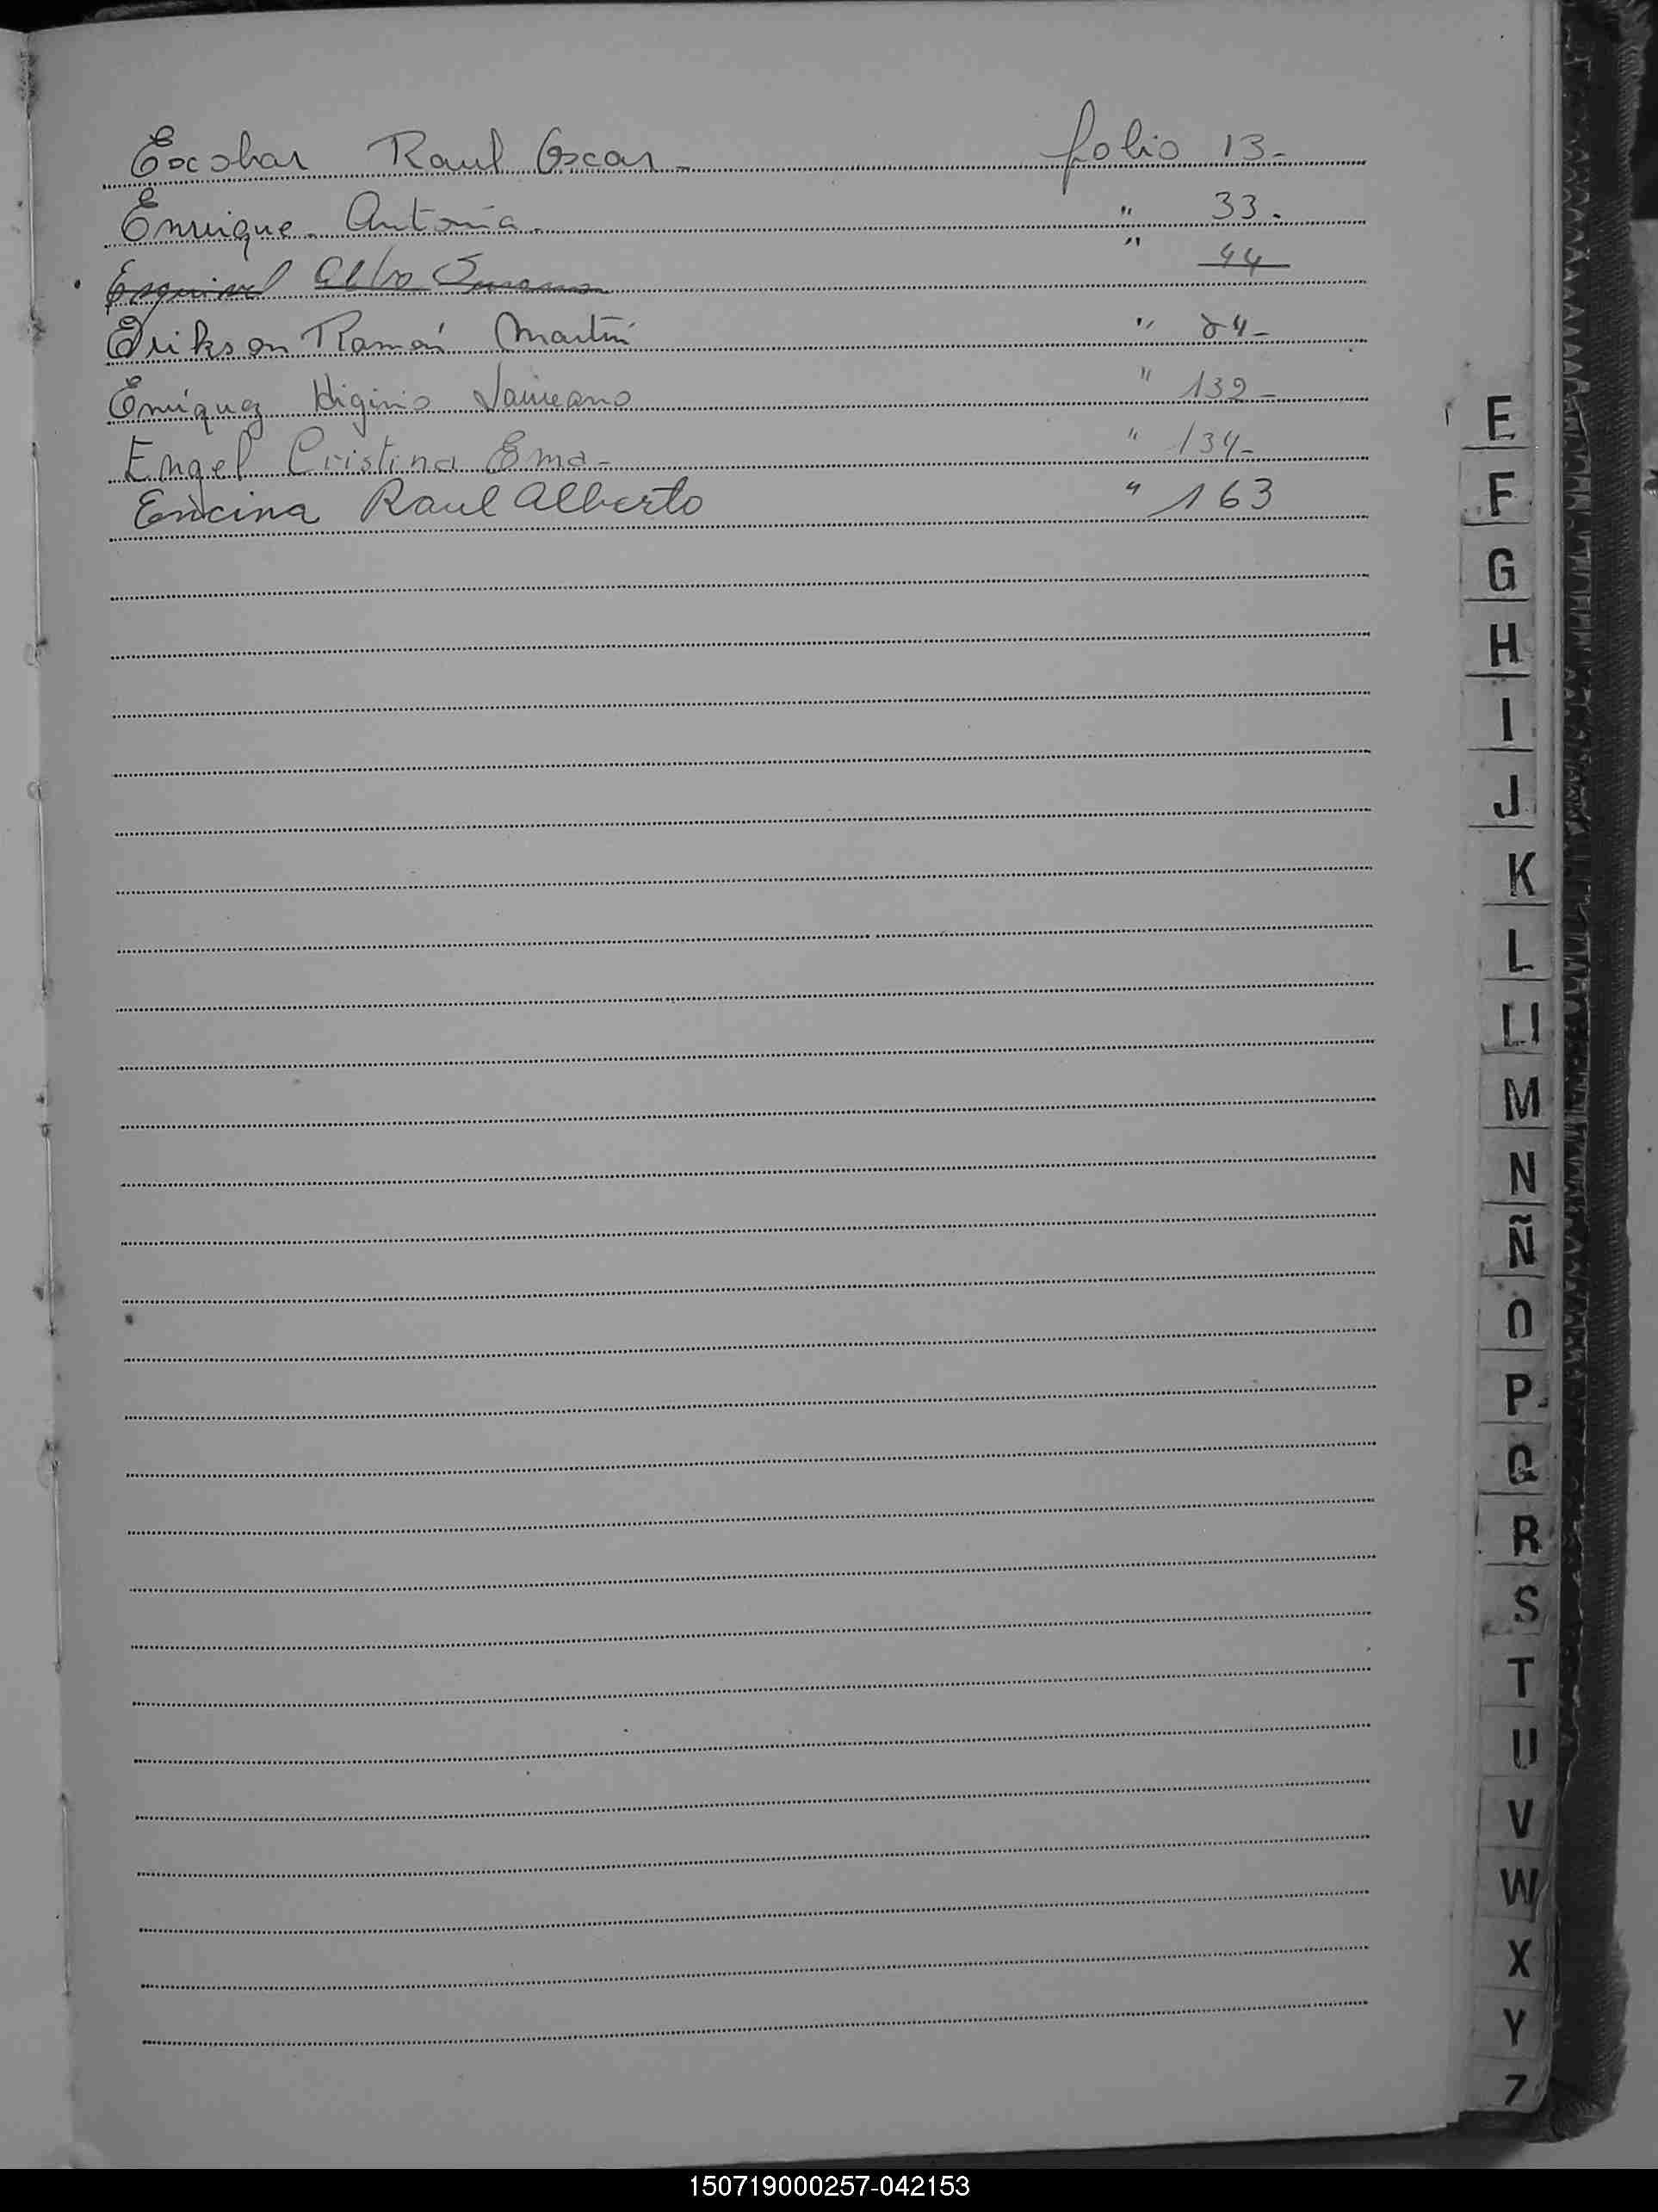 Escobar Raul Oscar - folio 13-
Enrrique - Antonia. " 33.
Esquivel Alba Susana " 44
Erikson Ramón Martín " 84-
Enriquez Higinio Laureano " 132-
Engel Cristina Ema- " 134-
Encina Raul Alberto " 163
E
F
G
H
I
J
K
L
Ll
M
N
Ñ
O
P
Q
R
S
T
U
V
W
X
Y
Z
150719000257-042153